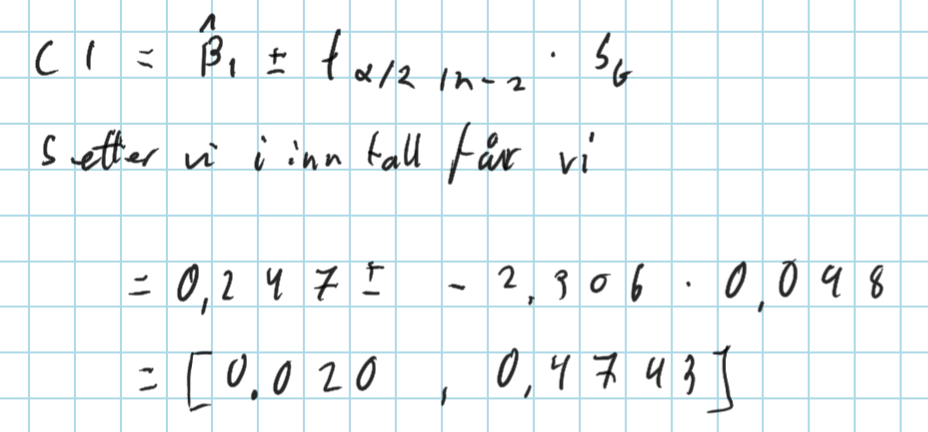 CI = β̂₁ ± t α/2, n-2 · S₆
Setter vi i inn tall får vi
= 0,247 ± -2,306 · 0,098
= [0.020 , 0,4743]